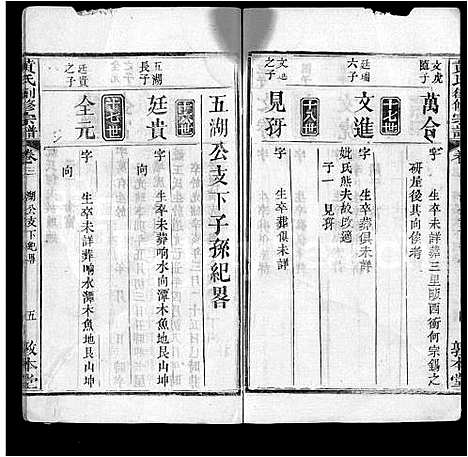 文虎
隨子
萬合
字 生卒未詳葬三里畈西衝何宗錫之
研屋後其向俟清
廷瑞
六子
十七世
文進
字 生卒葬俱未詳
妣氏熊夫故改適
子一 見犽
十八世
見犽
字 生卒葬俱未詳
五湖公支下子孫紀畧
五湖
長子
十六世
廷貴
字 生卒未詳葬响水潭木魚地艮山坤
向
廷貴
之子
十七世
全元
字 生卒未詳葬响水潭木魚地艮山坤
向
黃氏創修宗譜
卷三
湖公支下紀畧
五
敦本堂